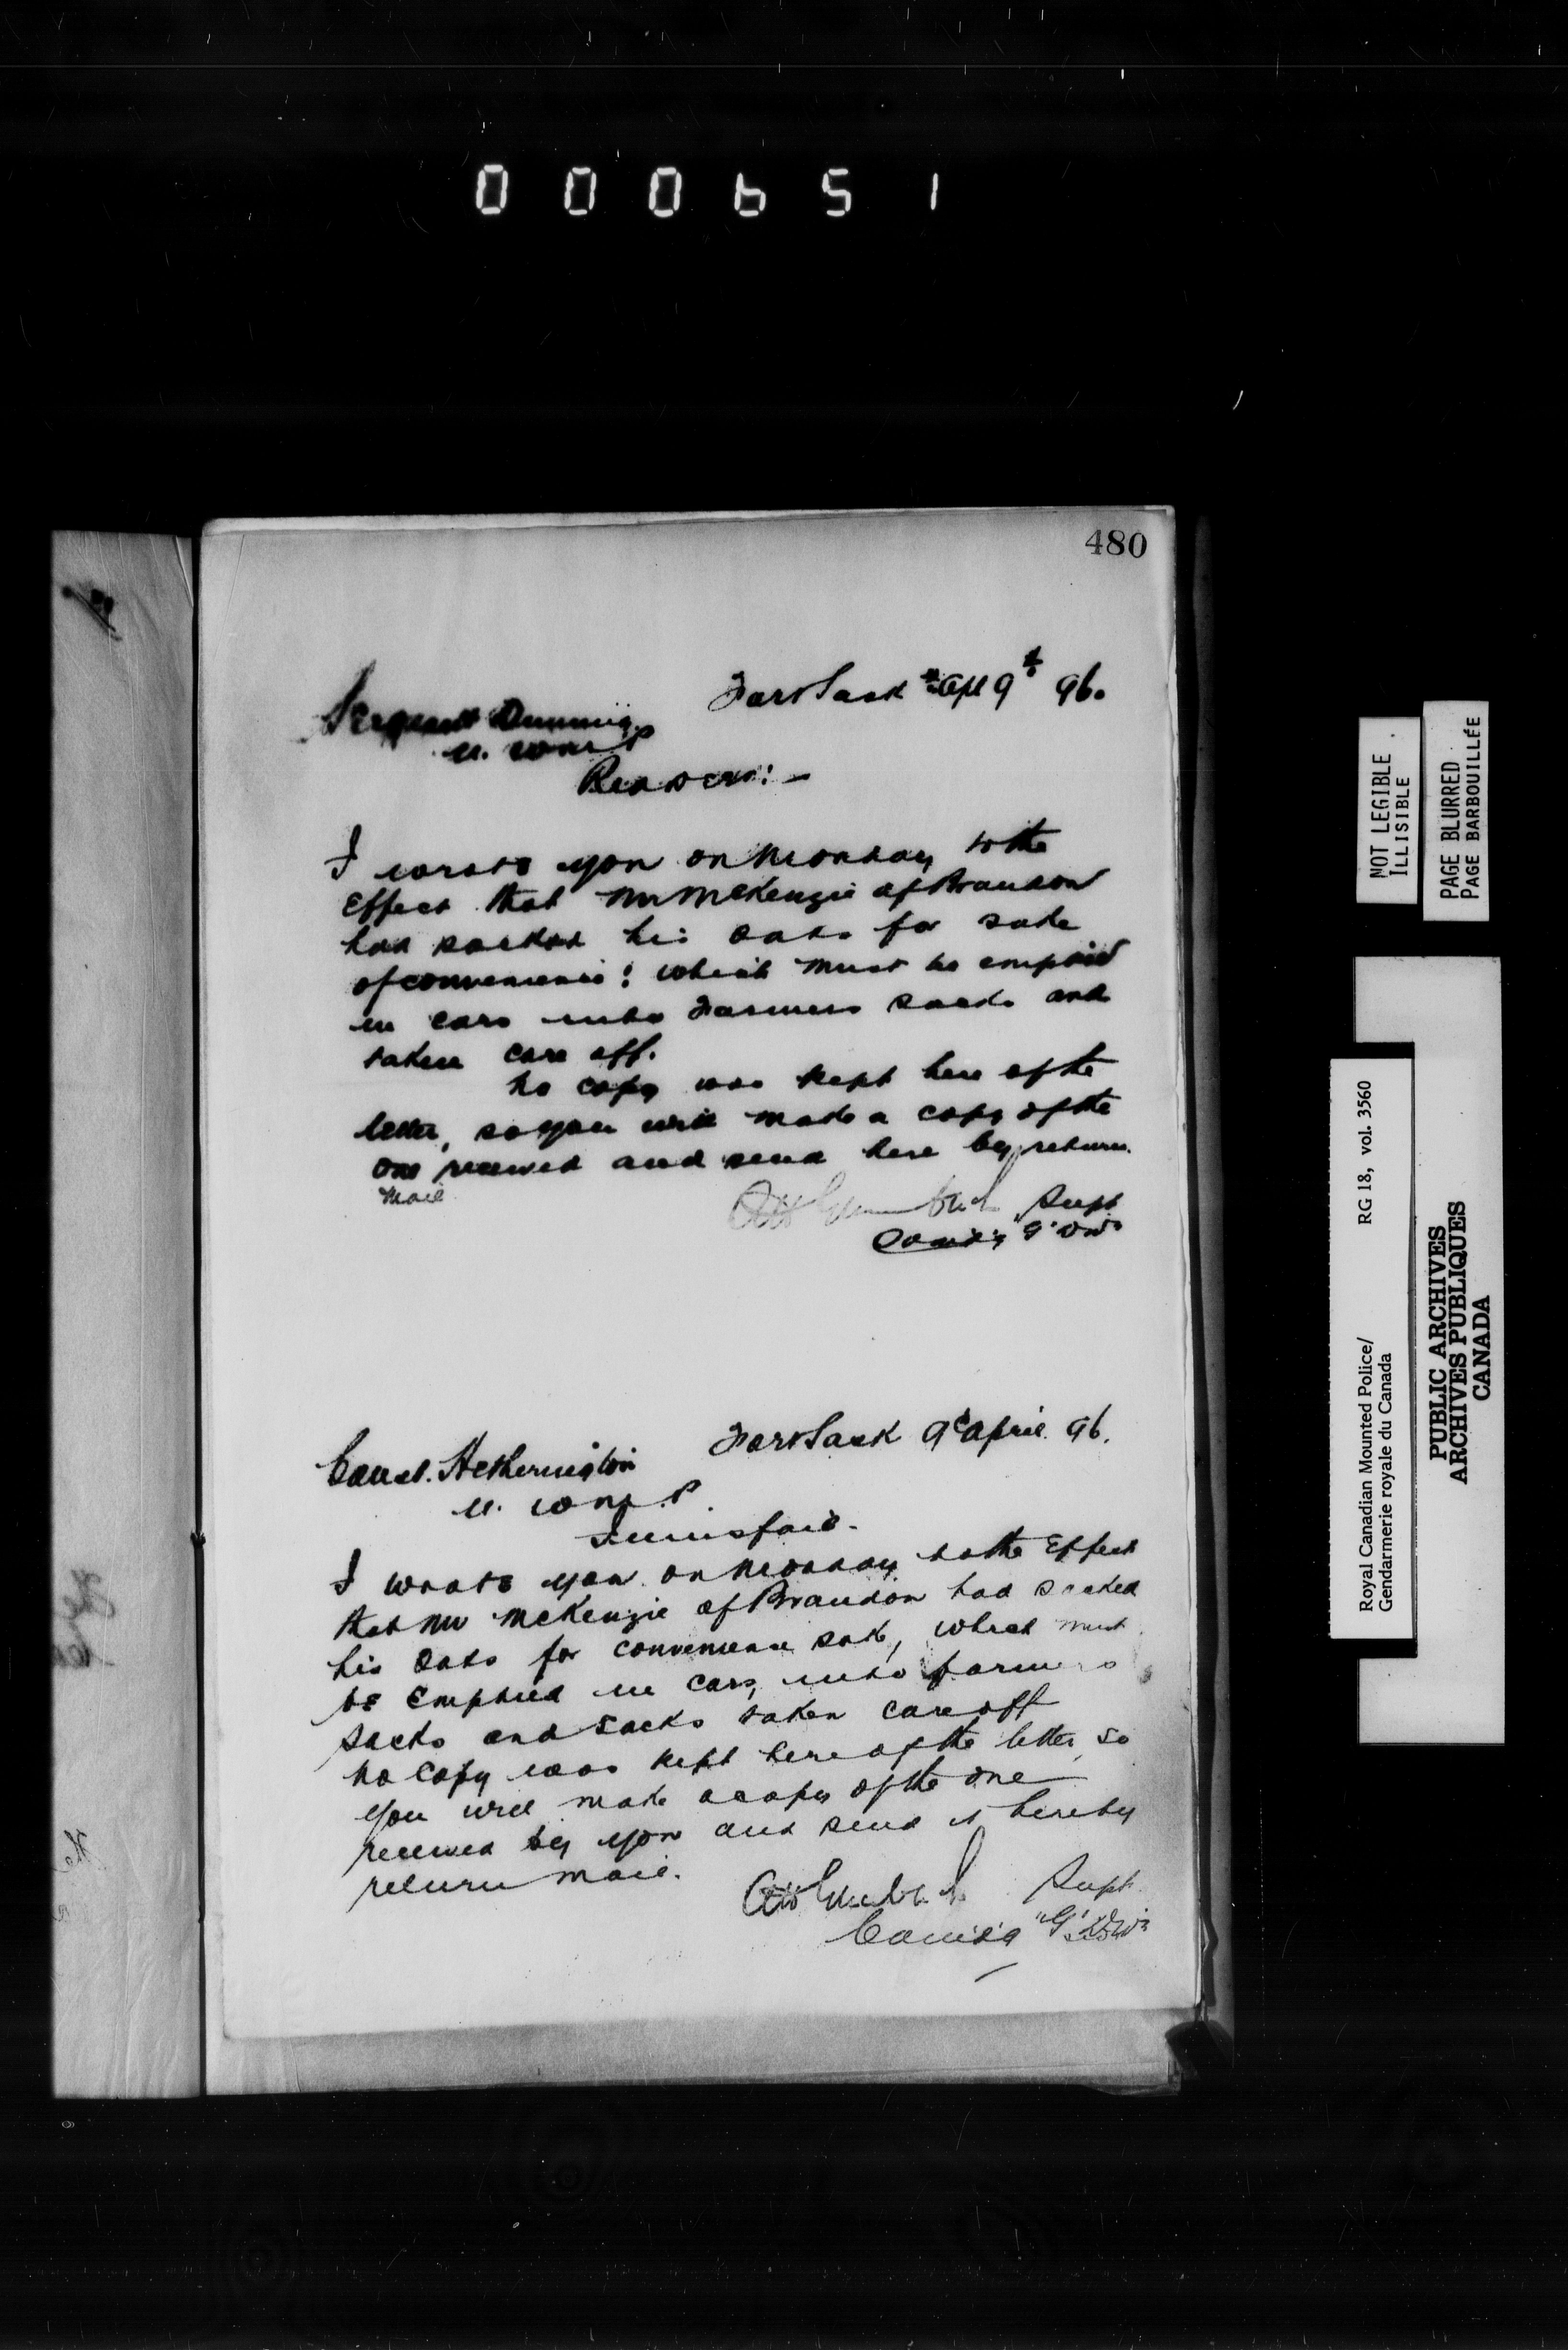 000651
480
Fort Sask Apl 9th 96.
Sergeant Dunning
N. W. M. P
Red Deer: —
I wrote you on Monday to the
Effect that Mr McKenzie of Brandon
had sacked his Oats for sake
of convenience: which must be emptied
in cars into Farmers sacks and
taken care off.
No copy was kept here of the
letter, so you will make a copy of the
one received and send here by return
Mail
Supt
Comdg "G" Div
Fort Sask 9th April 96.
Const. Hetherington
N. W. M. P.
Innisfail.
I wrote you on Monday to the Effect
that Mr McKenzie of Brandon had sacked
his Oats for convenience sake, which must
be Emptied in cars, into farmers
sacks and sacks taken care off
No Copy was kept here of the letter, so
you will make a copy of the one
received by you and send it here by
return mail.
Supt.
Comdg "G" Div
NOT LEGIBLE
ILLISIBLE
PAGE BLURRED
PAGE BARBOUILLÉE
Royal Canadian Mounted Police/ RG 18, vol. 3560
Gendarmerie royale du Canada
PUBLIC ARCHIVES
ARCHIVES PUBLIQUES
CANADA